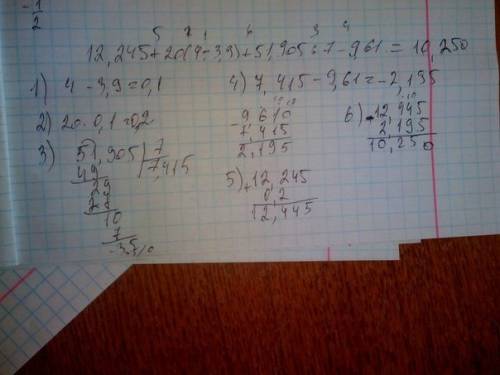 -1/2
5 2 1 6 3 4
12,245+20(4-3,9)+51,905:7-9,61=10,250
1) 4-3,9=0,1
2) 20·0,1=0,2
3) 51,905 7
49 7,415
29
28
10
7
-35
0
4) 7,415-9,61=-2,195
-9,610
7,415
2,195
5) +12,245
0,2
12,445
6) -12,445
2,195
10,250